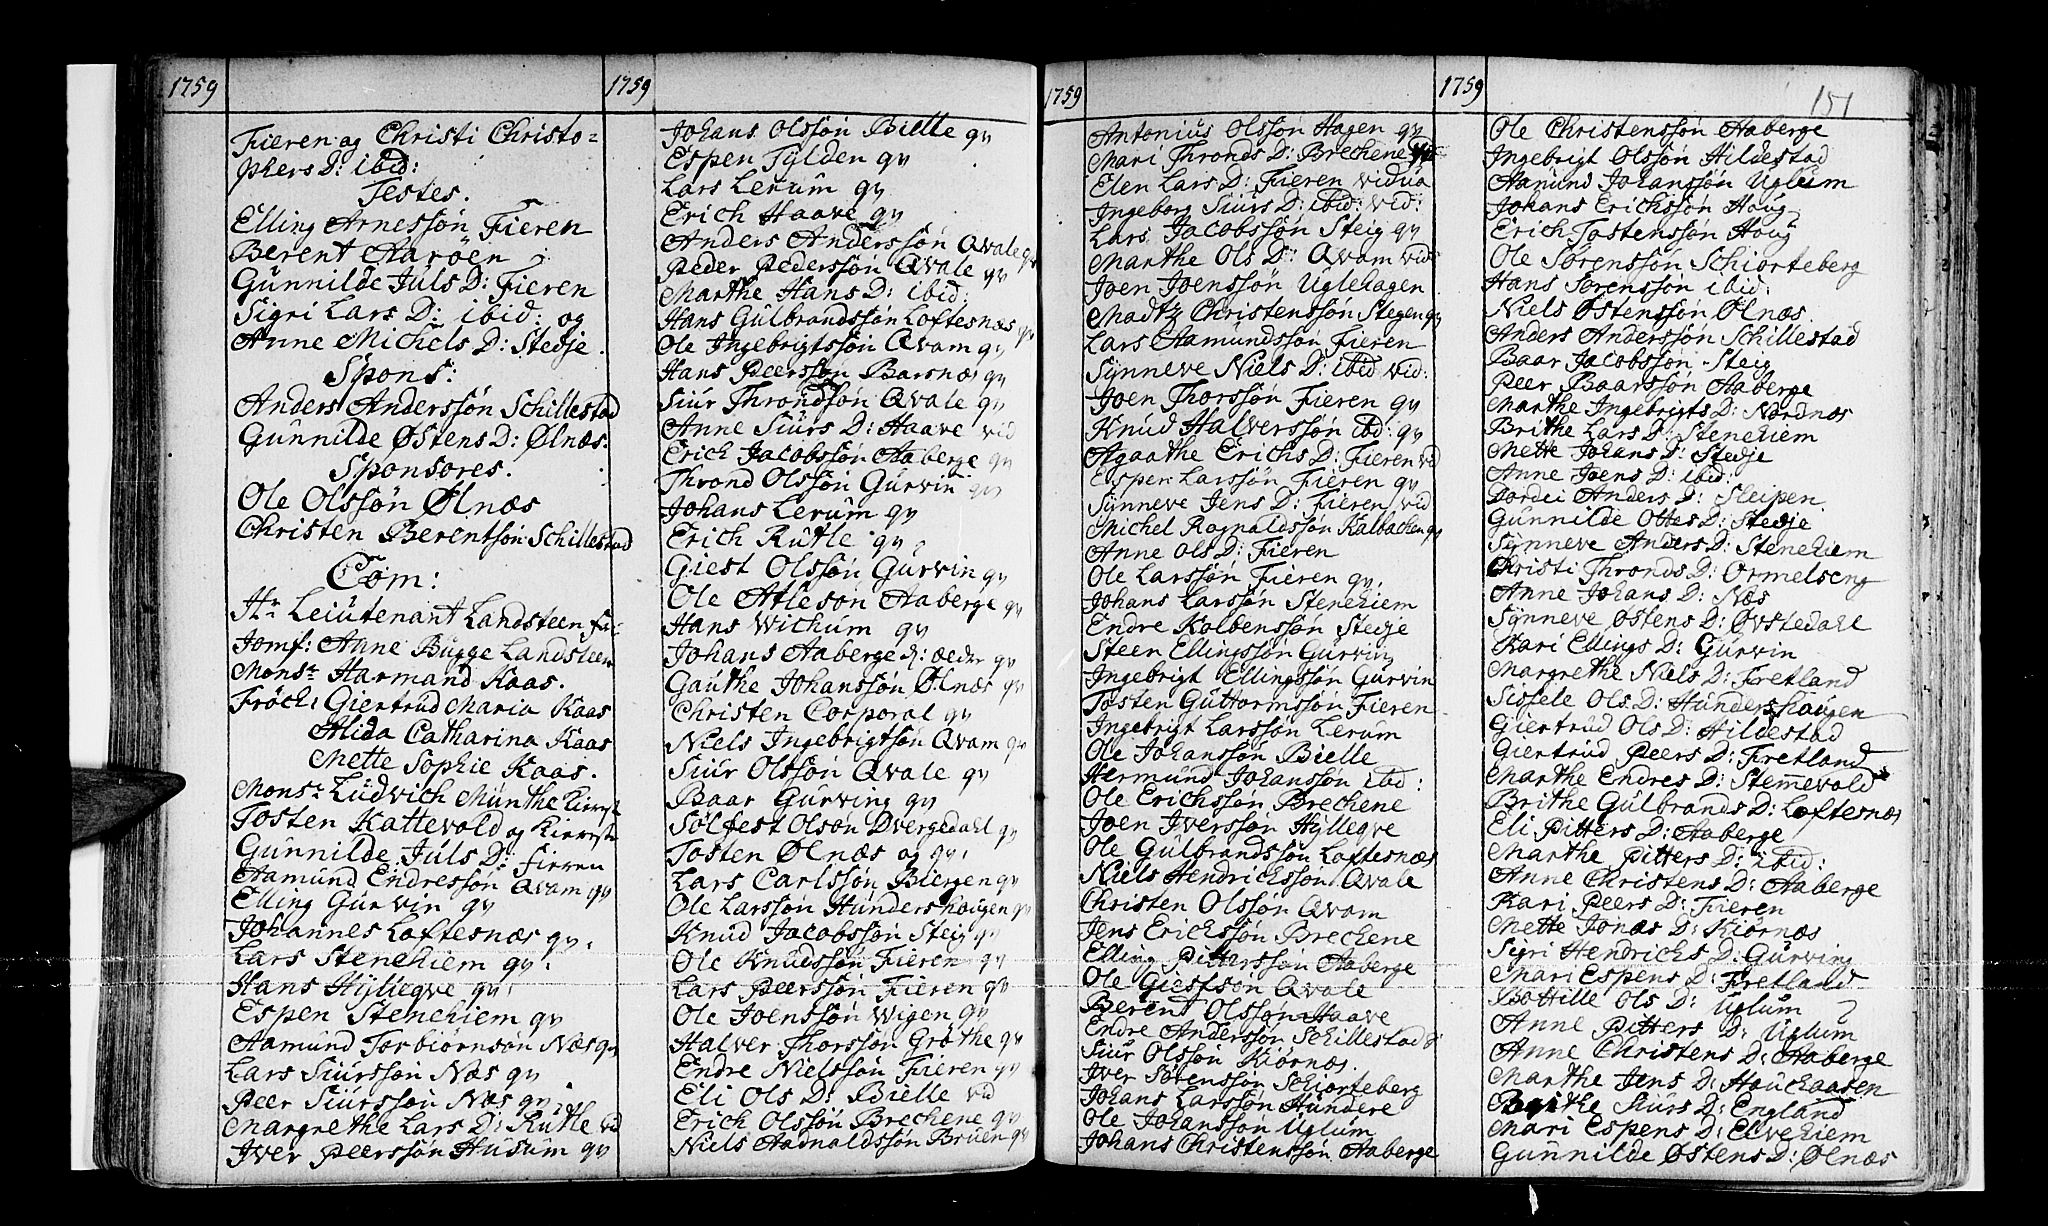 1759
Fieren og Christi Christo=
phers D: ibid:
Testes.
Elling Arnessøn Fieren
Berent Aarøen
Gunnilde Juls D: Fieren
Sigri Lars D: ibid: og
Anne Michels D: Stedje
Spons:
Anders Anderssøn Schillestad
Gunnilde Østens D: Ølnæs.
Sponsores.
Ole Olssøn Ølnæs
Christen Berentsøn Schillestad
Com:
Hr Leiutenant Landsteen
Jomf: Anne Bugge Landsteen
Monsr Harmand Kaas.
Fröch: Giertrud Maria Kaas
Alida Catharina Kaas
Mette Sophie Kaas.
Monsr Ludvich Munthe
Tosten Kattevold og
Gunnilde Juls D: Fieren
Aamund Endressøn Qvam qv
Elling Gurvin qv
Johannes Loftesnæs qv.
Lars Stenehiem qv.
Hans Hylleqve qv.
Espen Stenehiem qv
Aamund Torbiornsøn Næs qv
Lars Siurssøn Næs qv
Peer Siurssøn Næs qv.
Margrethe Lars D: Rutle vid
Iver Peerssøn Husum qv
1759
Johans Olssøn Bielle qv
Espen Tylden qv
Lars Lerum qv
Erich Haave qv
Anders Anderssøn Qvale qv
Peder Pederssøn Qvale qv
Marthe Hans D: ibid:
Hans Gulbrandssøn Loftesnæs qv
Ole Ingebrigtssøn Qvam qv
Hans Peerssøn Barsnæs qv
Siur Throndsøn Qvale qv
Anne Siurs D: Haave vid
Erich Jacobssøn Aaberge qv
Thrond Olssøn Gurvin qv
Johans Lerum qv
Erich Rutle qv
Giest Olssøn Gurvin qv
Ole Atlesøn Aaberge qv
Hans Wichum qv
Johans Aaberge d: ælder qv
Gauthe Johanssøn Ølnæs qv
Christen Corporal qv
Niels Ingebrigtsøn Qvam qv
Siur Olssøn Qvale qv
Baar Gurving qv
Sølfest Olsøn Dvergedahl qv
Tosten Ølnæs og qv.
Lars Carlssøn Biergen qv
Ole Larssøn Hundershougen qv
Knud Jacobssøn Steig qv
Ole Knudssøn Fieren qv
Lars Peerssøn Fieren qv
Ole Joenssøn Wigen qv
Halver Thorssøn Grøthe qv
Endre Nielssøn Fieren qv
Eli Ols D: Bielle vid
Erich Olssøn Brechene qv
Niels Aadnaldssøn Bruen qv
1759
Antonius Olssøn Hagen qv
Mari Thronds D: Brechene
Elen Lars D: Fieren vidua
Ingeborg Siurs D: ibid: vid:
Lars Jacobssøn Steig qv
Marthe Ols D: Qvam vid
Joen Joenssøn Uglehagen
Madtz Christenssøn Stegen qv
Lars Aamundssøn Fieren
Synneve Niels D: ibid vid:
Joen Thorssøn Fieren qv
Knud Halverssøn ibd: qv
Agaathe Erichs D: Fieren vid
Espen Larssøn Fieren qv
Synneve Jens D: Fieren vid
Michel Ragnaldssøn Kalbachen qv
Anne Ols D: Fieren
Ole Larssøn Fieren qv.
Johans Larssøn Stenehiem
Endre Kolbenssøn Stedje
Steen Ellingssøn Gurvin
Ingebrigt Ellingssøn Gurvin
Tosten Guttormssøn Fieren
Ingebrigt Larssøn Lerum
Ole Johanssøn Bielle
Hermund Johanssøn ibid:
Ole Erichssøn Brechene
Joen Iverssøn Hylleqve
Ole Gulbrandssøn Loftesnæs
Niels Hendrichssøn Qvale
Christen Olssøn Qvam
Jens Erichssøn Brechene
Elling Pitterssøn Aaberge
Ole Giestsøn Qvale
Berent Olssøn Haave
Endre Anderssøn Schillestad
Siur Olssøn Kiørnæs.
Iver Sørenssøn Schiorteberg
Johans Larssøn Hundere
Ole Johanssøn Uglum
Johans Christenssøn Aaberge
1759 151
Ole Christenssøn Aaberge
Ingebrigt Olssøn Hildestad
Aamund Johanssøn Uglum
Johans Erichssøn Houg
Erich Tostenssøn Houg
Ole Sørenssøn Schiorteberg
Hans Sorenssøn ibid:
Niels Østenssøn Ølnæs.
Anders Anderssøn Schillestad
Baar Jacobssøn Steig
Peer Baarssøn Aaberge
Marthe Ingebrigts D: Nordnæs
Brithe Lars D: Stenehiem
Mette Johans D: Stedje
Anne Joens D: ibid:
Dordei Anders D: Sleipen.
Gunnilde Ottes D: Stedje
Synneve Anders D: Stenehiem
Christi Thronds D: Ormelseng
Anne Johans D: Næs
Synneve Østens D: Øvstedahl
Kari Ellings D: Gurvin
Margrethe Niels D: Fretland
Sissele Ols D: Hundershougen
Giertrud Ols D: Hildestad
Giertrud Peers D: Fretland
Marthe Endres D: Stemmevold
Brithe Gulbrands D: Loftesnæs
Eli Pitters D: Aaberge
Marthe Pitters D: ibid:
Anne Christens D: Aaberge
Kari Peers D: Fieren
Mette Jonæs D: Kiornæs
Sigri Hendrichs D: Gurving
Mari Espens D: Fretland
Bottille Ols D: Uglum
Anne Pitters D: Uglum
Anne Christens D: Aaberge
Marthe Jens D: Houchaasen
Brithe Siurs D: England
Mari Espens D: Elvehiem
Gunnilde Østens D: Ølnæs